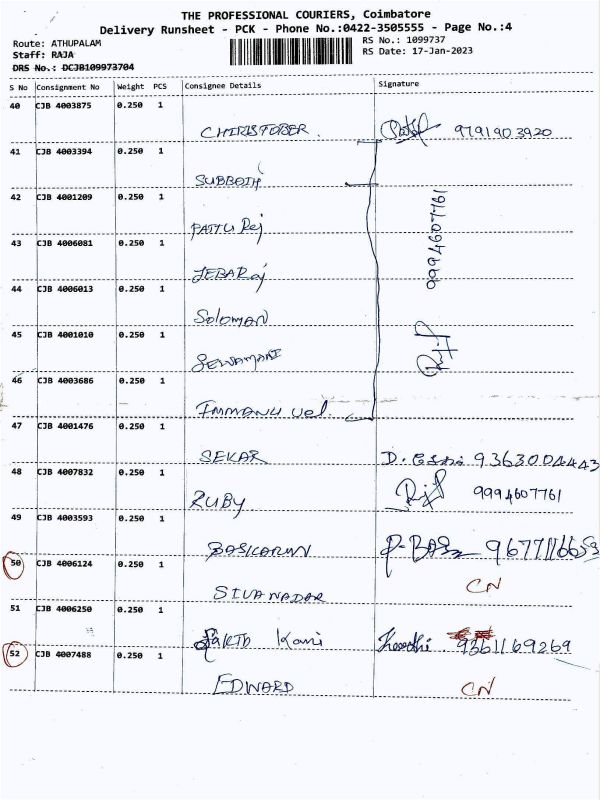 THE PROFESSIONAL COURIERS, Coimbatore
Delivery Runsheet - PCK - Phone No.:0422-3505555 - Page No.:4
Route: ATHUPALAM
RS No.: 1099737
Staff: RAJA
RS Date: 17-Jan-2023
DRS No.: DCJB109973704
S No Consignment No Weight PCS Consignee Details Signature
40 CJB 4003875 0.250 1
CHIRISTOBER. 9791903920
41 CJB 4003394 0.250 1
SUBBATH
42 CJB 4001209 0.250 1
PATTU Raj
9994607761
43 CJB 4006081 0.250 1
JEBARaj
44 CJB 4006013 0.250 1
SOLOMAN
45 CJB 4001010 0.250 1
SELVAMANI
46 CJB 4003686 0.250 1
IMMANUvel.
47 CJB 4001476 0.250 1
SEKAR 9363004443
48 CJB 4007832 0.250 1
RUBY 9994607761
49 CJB 4003593 0.250 1
BASKARAN
50 CJB 4006124 0.250 1
SIVANADAR CN
51 CJB 4006250 0.250 1
Kani 9361169269
52 CJB 4007488 0.250 1
EDWARD CN